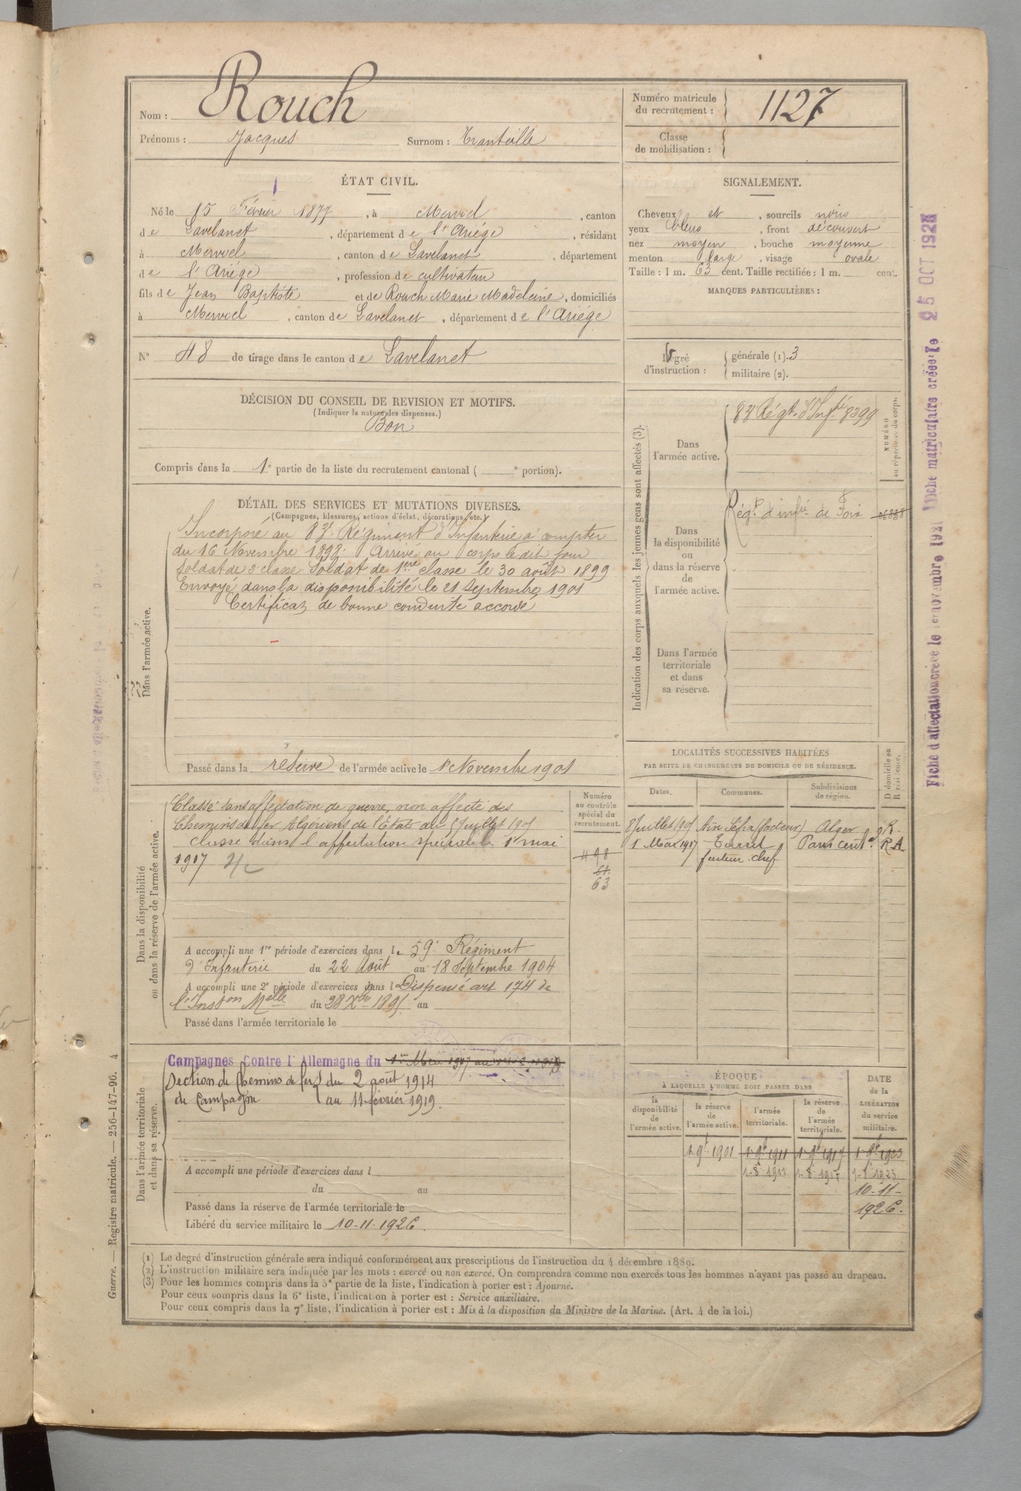 Nom : Rouch
Prénoms : Jacques Surnom :
Numéro matricule du recrutement : 1127
Classe de mobilisation :
ÉTAT CIVIL.
Né le 15 Février 1877, à , canton
de Lavelanet, département de l'Ariège, résidant
à , canton de Lavelanet, département
de l'Ariège, profession de cultivateur
fils de Jean Baptiste et de Rouch Marie Madeleine, domiciliés
à , canton de Lavelanet, département de l'Ariège
N° 48 de tirage dans le canton de Lavelanet
SIGNALEMENT.
Cheveux et , sourcils noirs
yeux bleus, front découvert
nez moyen, bouche moyenne
menton large, visage ovale
Taille : 1 m. 63 cent. Taille rectifiée : 1 m. cent.
MARQUES PARTICULIÈRES :
Degré d'instruction : générale (1). 3
militaire (2).
DÉCISION DU CONSEIL DE REVISION ET MOTIFS.
(Indiquer la nature des dispenses.)
Bon
Compris dans la 1e partie de la liste du recrutement cantonal ( e portion).
DÉTAIL DES SERVICES ET MUTATIONS DIVERSES.
(Campagnes, blessures, actions d'éclat, décorations, etc.)
Dans l'armée active.
Incorporé au 83e Régiment d'Infanterie à compter
du 16 Novembre 1898. Arrivé au corps le dit jour
soldat de 2e classe. Soldat de 1ère classe le 30 août 1899
Envoyé dans la disponibilité le 21 Septembre 1901
Certificat de bonne conduite accordé
Passé dans la réserve de l'armée active le 1er Novembre 1901
Indication des corps auxquels les jeunes gens sont affectés (3).
NUMÉRO au répertoire du corps.
Dans l'armée active.
83e Régt d'Infie 8399
Dans la disponibilité ou dans la réserve de l'armée active.
Régt d'infie de Foix
Dans l'armée territoriale et dans sa réserve.
LOCALITÉS SUCCESSIVES HABITÉES
PAR SUITE DE CHANGEMENTS DE DOMICILE OU DE RÉSIDENCE.
Dates. Communes. Subdivisions de région. D domicile ou R résidence.
8 Juillet 1905 Aïn Sefra (facteur) Alger R.
1 Mai 1917 facteur chef Paris Cent. R.A
Dans la disponibilité ou dans la réserve de l'armée active.
Numéro au contrôle spécial du recrutement.
Classé sans affectation de guerre, non affecté des
Chemins de fer Algériens de l'État du 8 Juillet 1905
Classé dans l'affectation spéciale le 1er mai
1917
63
A accompli une 1re période d'exercices dans le 59e Régiment
d'Infanterie du 22 Août au 18 Septembre 1904
A accompli une 2e période d'exercices dans l Dispensé art 174 de
l'Inston Melle du 28 Xbre 1895 au
Passé dans l'armée territoriale le
Dans l'armée territoriale et dans sa réserve.
Campagnes Contre l'Allemagne du
Section de Chemins de fer du 2 août 1914
de Campagne au 11 février 1919.
A accompli une période d'exercices dans l
du au
Passé dans la réserve de l'armée territoriale le
Libéré du service militaire le 10-11-1926.
ÉPOQUE
À LAQUELLE L'HOMME DOIT PASSER DANS
la disponibilité de l'armée active. la réserve de l'armée active. l'armée territoriale. la réserve de l'armée territoriale. DATE de la LIBÉRATION du service militaire.
1 9bre 1901 1 9bre 1911 1 9bre 1917 1 9bre 1923
10-11-
1926.
(1) Le degré d'instruction générale sera indiqué conformément aux prescriptions de l'instruction du 4 décembre 1889.
(2) L'instruction militaire sera indiquée par les mots : exercé ou non exercé. On comprendra comme non exercés tous les hommes n'ayant pas passé au drapeau.
(3) Pour les hommes compris dans la 5e partie de la liste, l'indication à porter est : Ajourné.
Pour ceux compris dans la 6e liste, l'indication à porter est : Service auxiliaire.
Pour ceux compris dans la 7e liste, l'indication à porter est : Mis à la disposition du Ministre de la Marine. (Art. 4 de la loi.)
Guerre. — Registre matricule. 256-147-96. 4
Fiche matriculaire créée le 25 OCT 1928